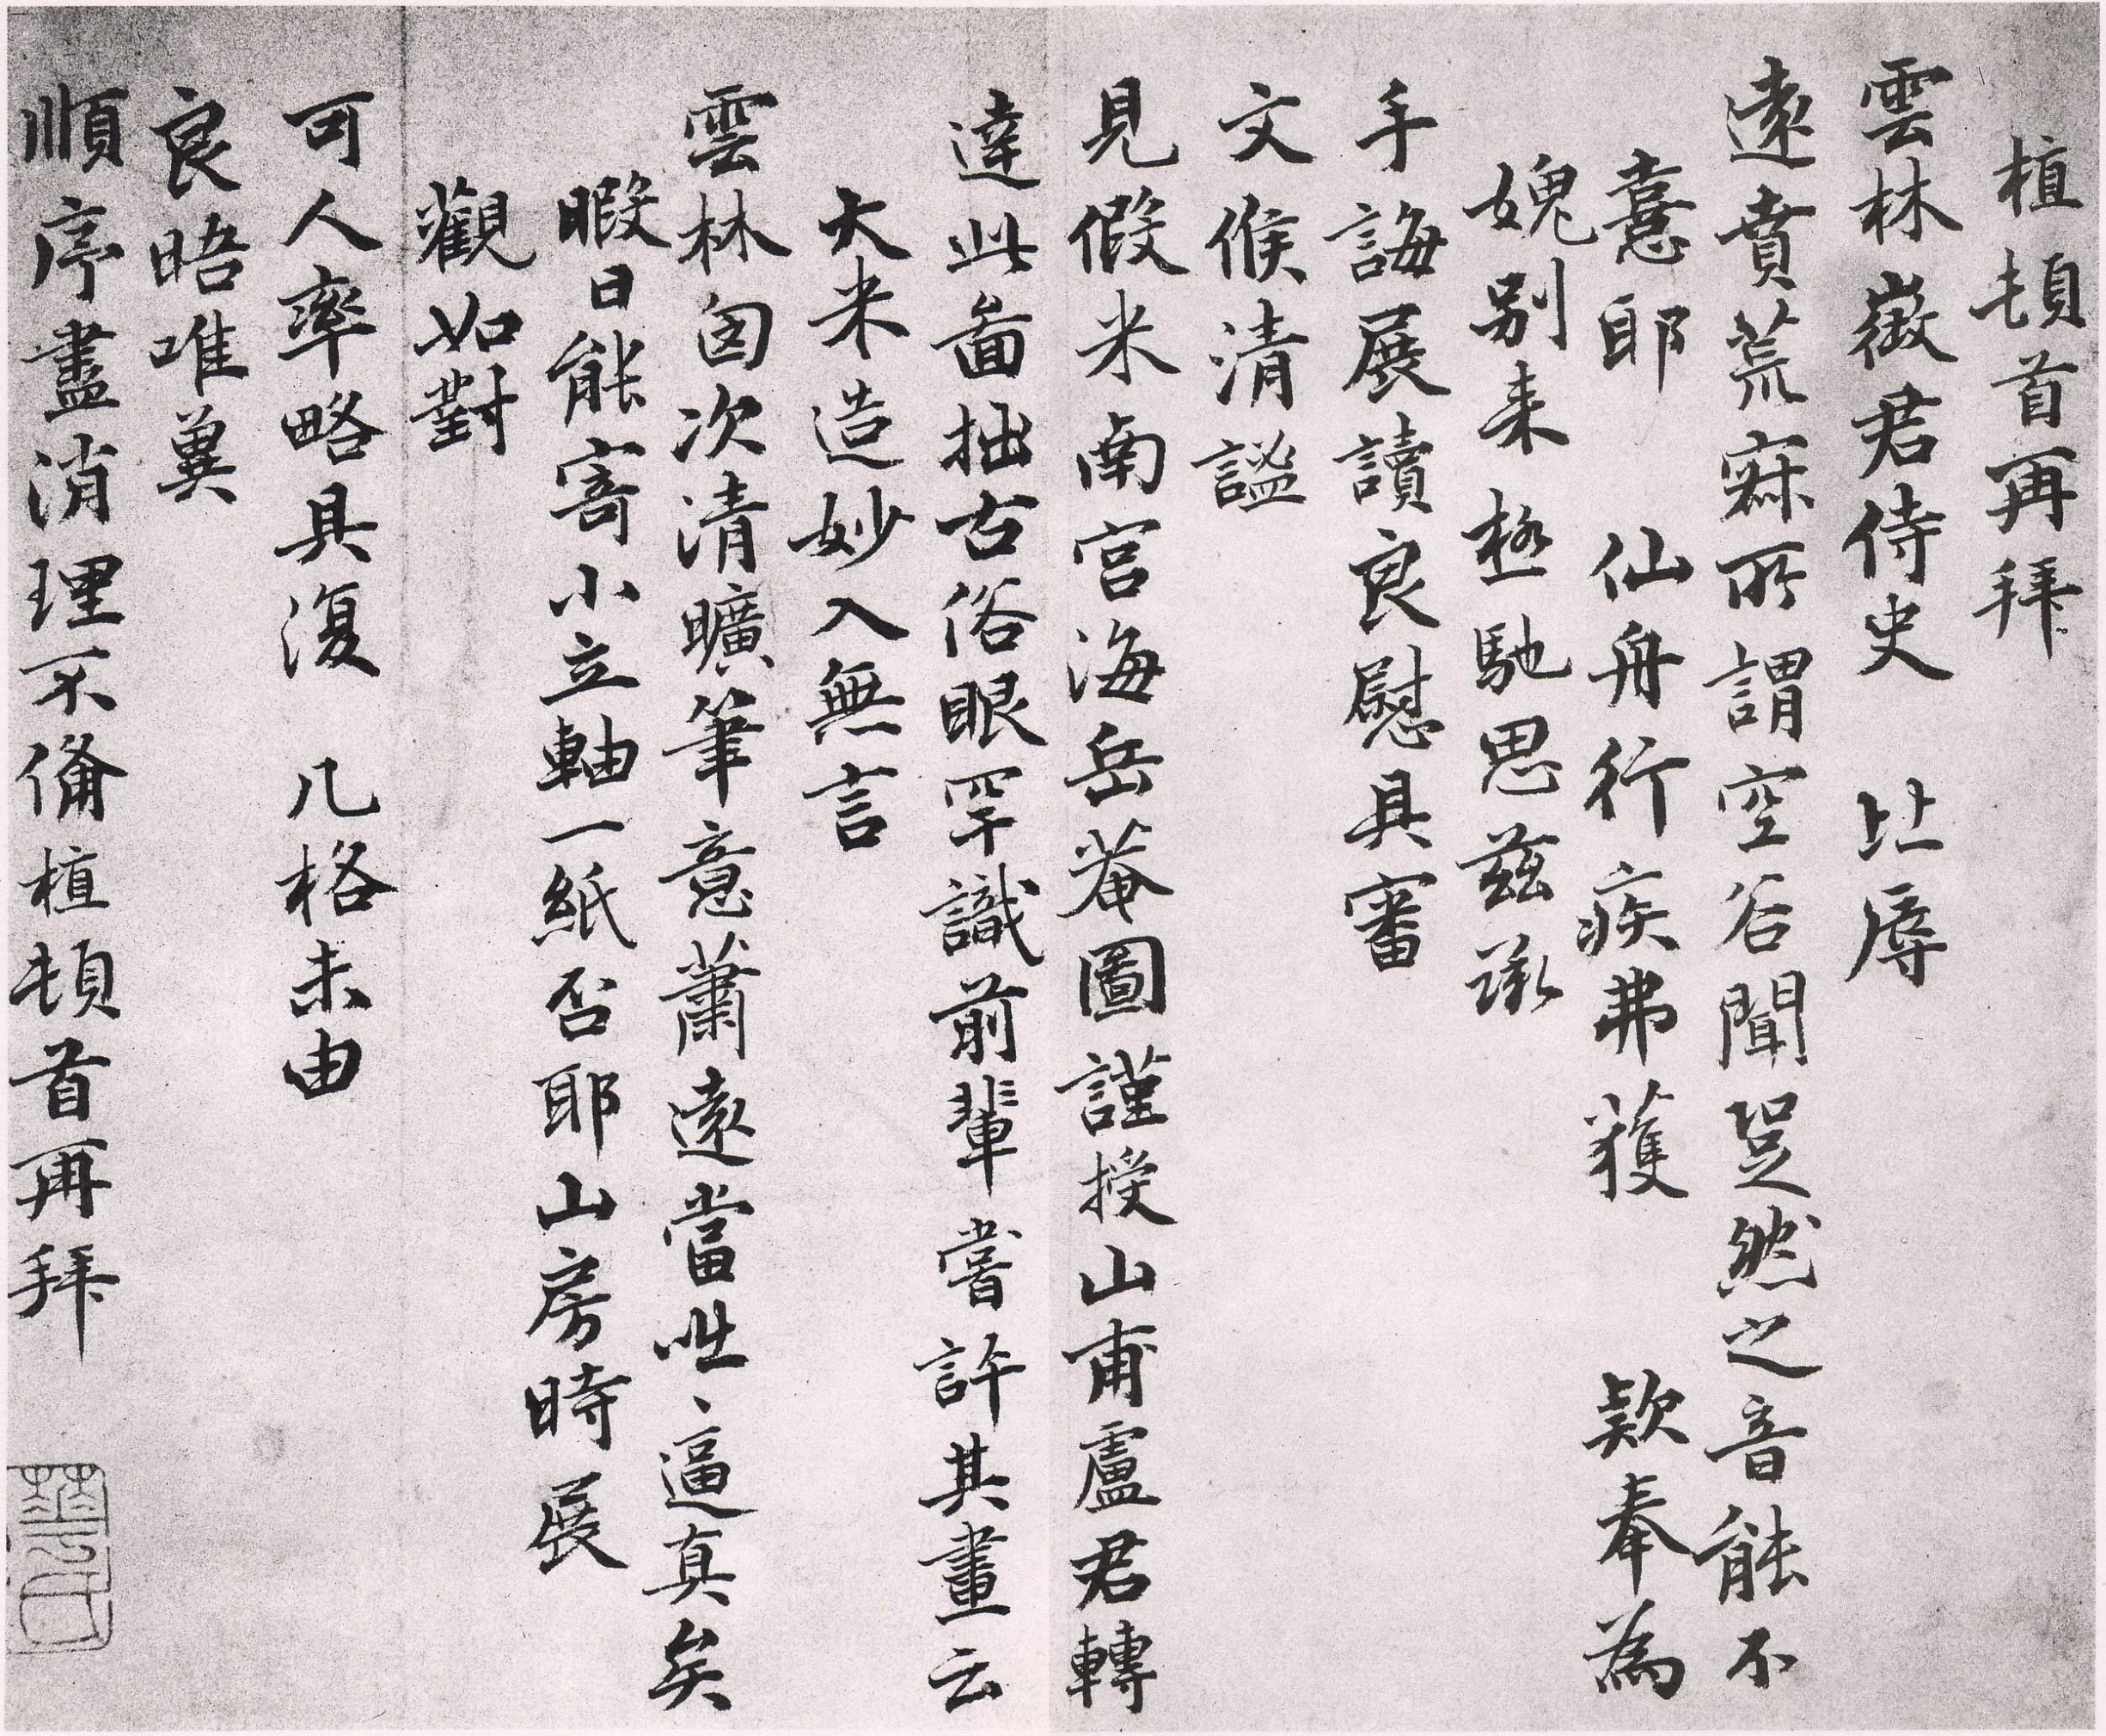 植頓首再拜
雲林徵君侍史 比辱
遠賁荒寂所謂空谷聞跫然之音能不
憙耶 仙舟行疾弗獲 欵奉為
媿別来極馳思茲承
手誨展讀良慰具審
文候清謐
見假米南宮海岳菴圖謹授山甫盧君轉
達此啚拙古俗眼罕識前輩嘗許其畫云
大米造妙入無言
雲林囪次清曠筆意蕭遠當咄、逼真矣
暇日能寄小立軸一紙否耶山房時展
觀如對
可人率略具復 几格未由
良晤唯冀
順序盡消理不備植頓首再拜